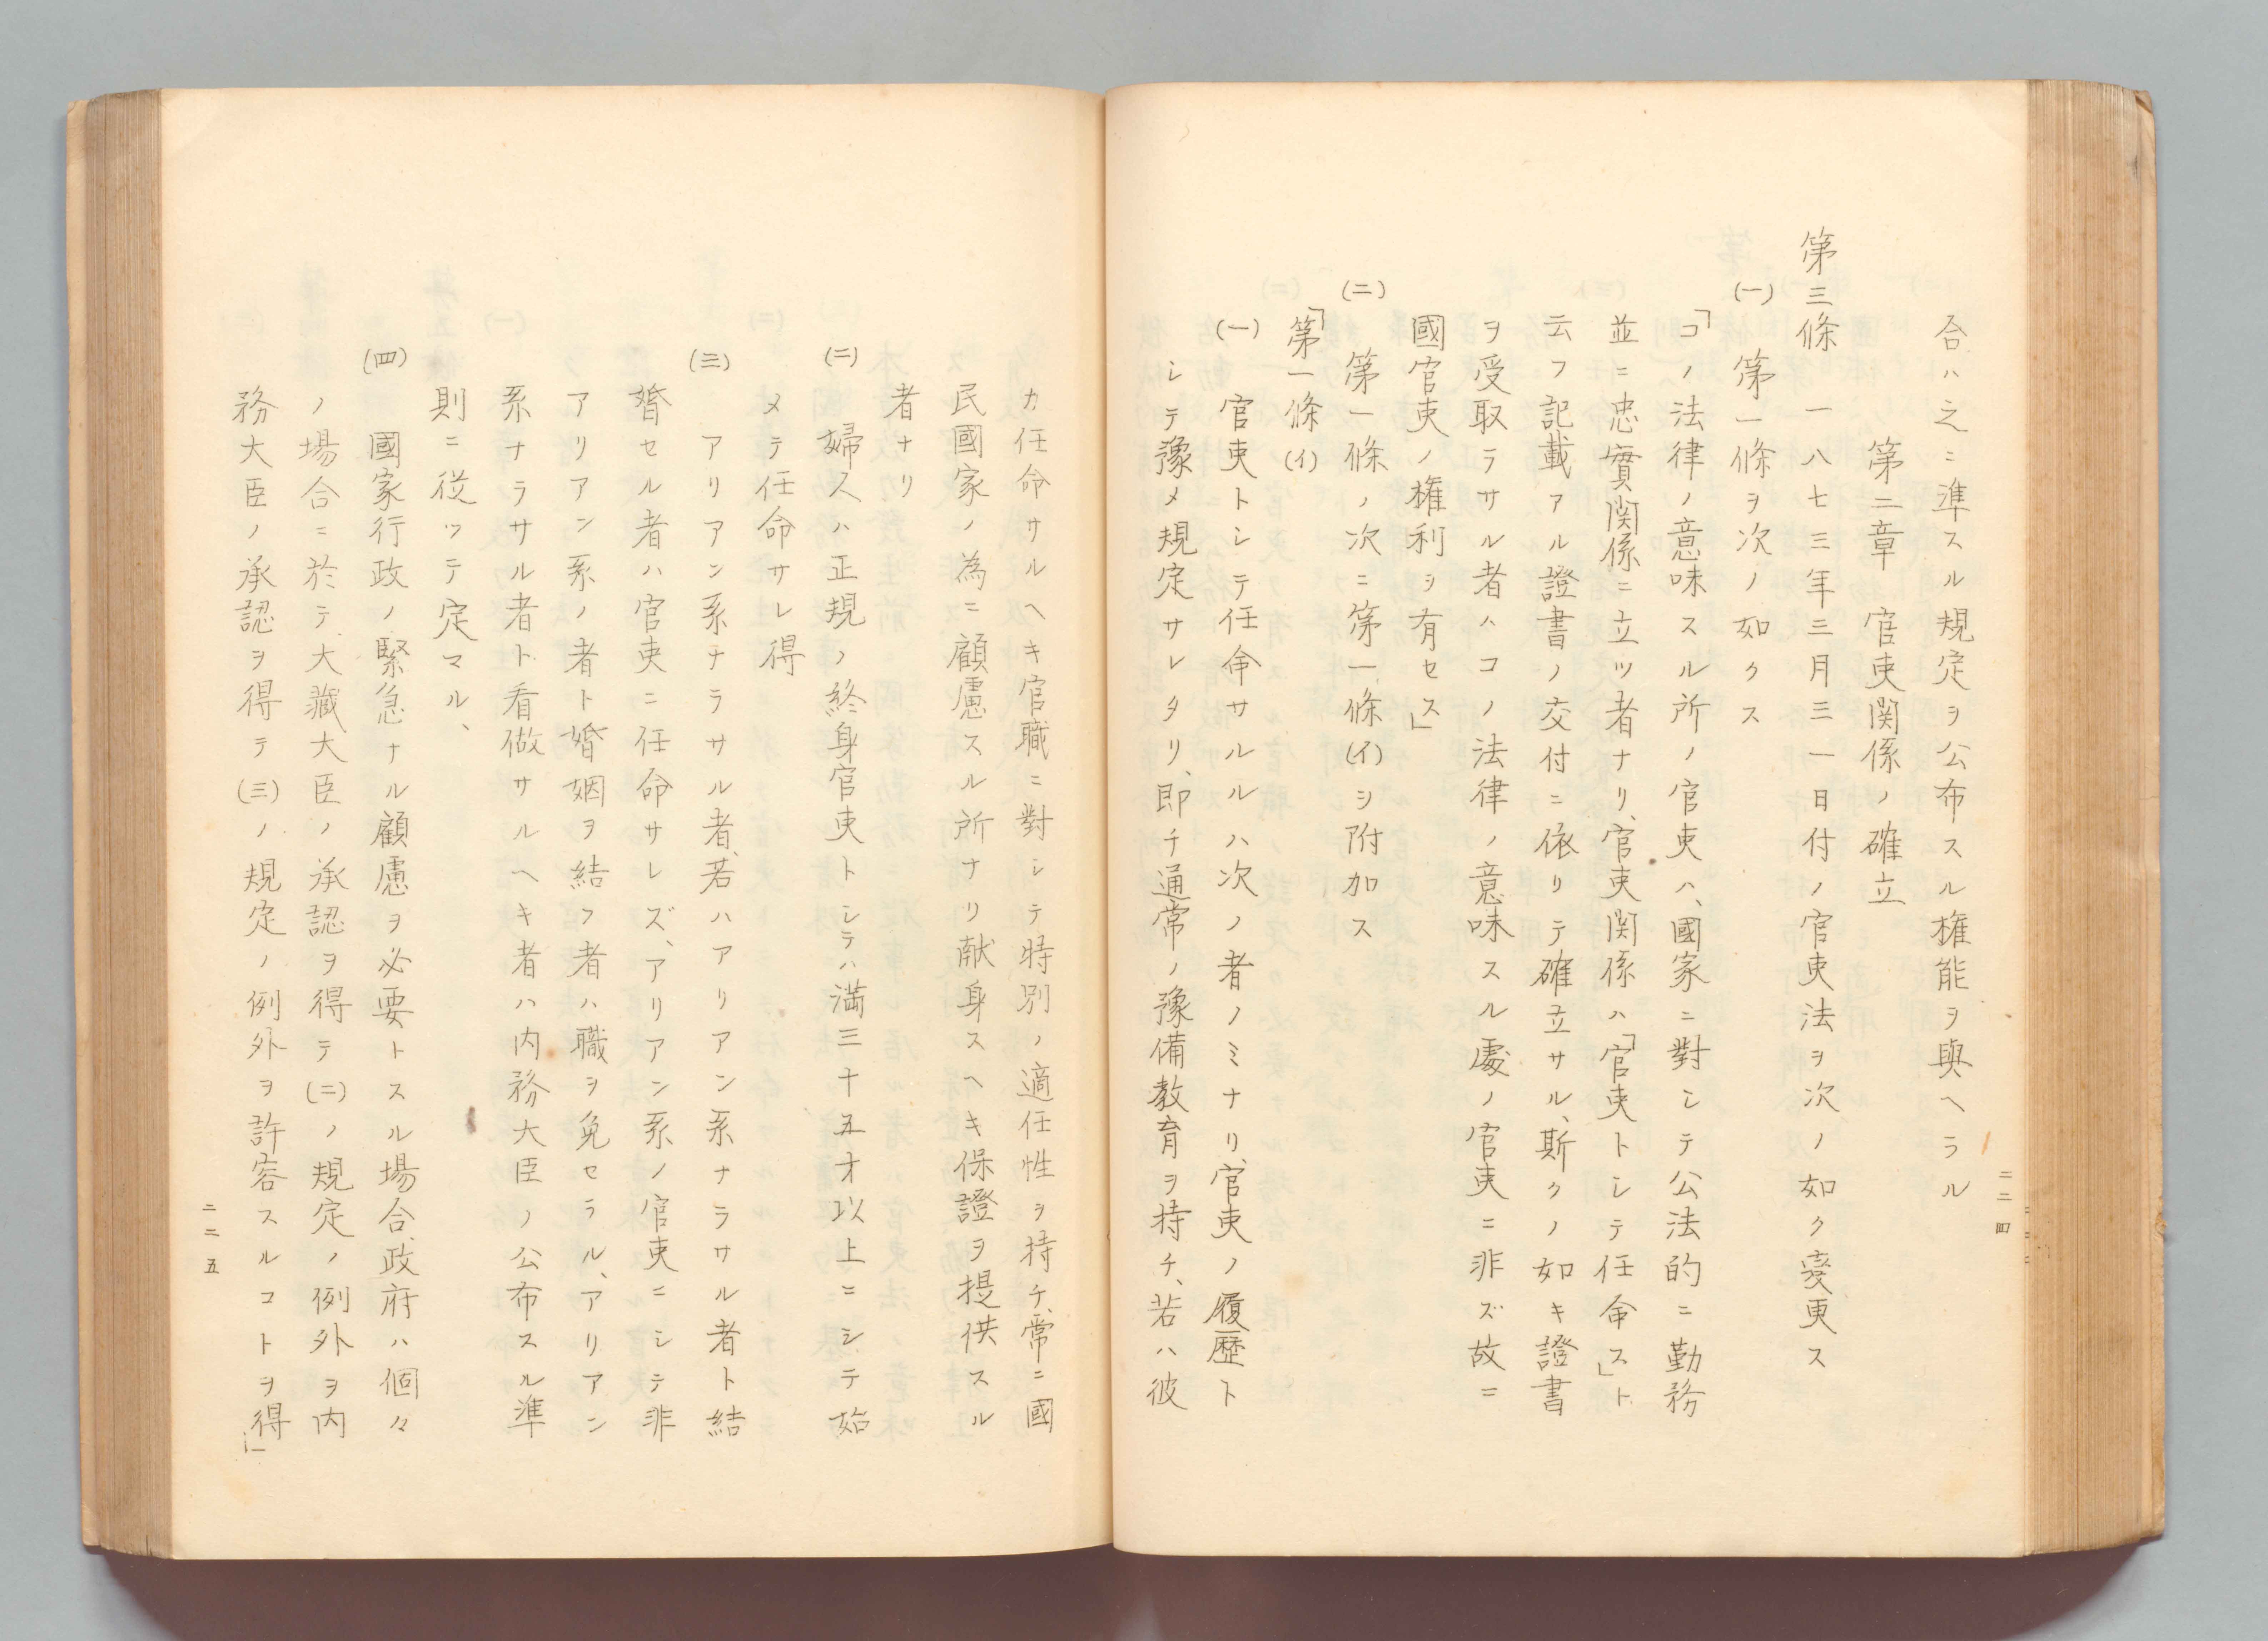 合ハ之ニ準スル規定ヲ公布スル権能ヲ與ヘラル
第二章　官吏関係ノ確立
第三條　一八七三年三月三一日付ノ官吏法ヲ次ノ如ク変更ス
(一)　第一條ヲ次ノ如クス
「コノ法律ノ意味スル所ノ官吏ハ、國家ニ對シテ公法的ニ勤務
並ニ忠實関係ニ立ツ者ナリ、官吏関係ハ「官吏トシテ任命ス」ト
云フ記載アル證書ノ交付ニ依リテ確立サル、斯クノ如キ證書
ヲ受取ラサル者ハコノ法律ノ意味スル處ノ官吏ニ非ズ故ニ
國官吏ノ権利ヲ有セス」
(二)　第一條ノ次ニ第一條(イ)ヲ附加ス
「第一條(イ)
(一)　官吏トシテ任命サルルハ次ノ者ノミナリ、官吏ノ履歴ト
シテ豫メ規定サレタリ、即チ通常ノ豫備教育ヲ持チ、若ハ彼
二二四
カ任命サルヘキ官職ニ對シテ特別ノ適任性ヲ持チ、常ニ國
民國家ノ為ニ顧慮スル所ナリ献身スヘキ保證ヲ提供スル
者ナリ
(二)　婦人ハ正規ノ終身官吏トシテハ満三十五才以上ニシテ始
メテ任命サレ得
(三)　アリアン系ナラサル者、若ハアリアン系ナラサル者ト結
婚セル者ハ官吏ニ任命サレズ、アリアン系ノ官吏ニシテ非
アリアン系ノ者ト婚姻ヲ結フ者ハ職ヲ免セラル、アリアン
系ナラサル者ト看做サルヘキ者ハ内務大臣ノ公布スル準
則ニ従ツテ定マル、
(四)　國家行政ノ緊急ナル顧慮ヲ必要トスル場合、政府ハ個々
ノ場合ニ於テ大藏大臣ノ承認ヲ得テ(二)ノ規定ノ例外ヲ内
務大臣ノ承認ヲ得テ(三)ノ規定ノ例外ヲ許容スルコトヲ得」
二二五